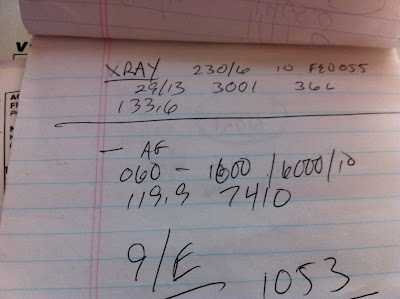 XRAY 230/6 10 FEO055
29/13 3001 36L
133.6
— AF
060 - 1600 /6000/10
119.9 7410
9/E 1053